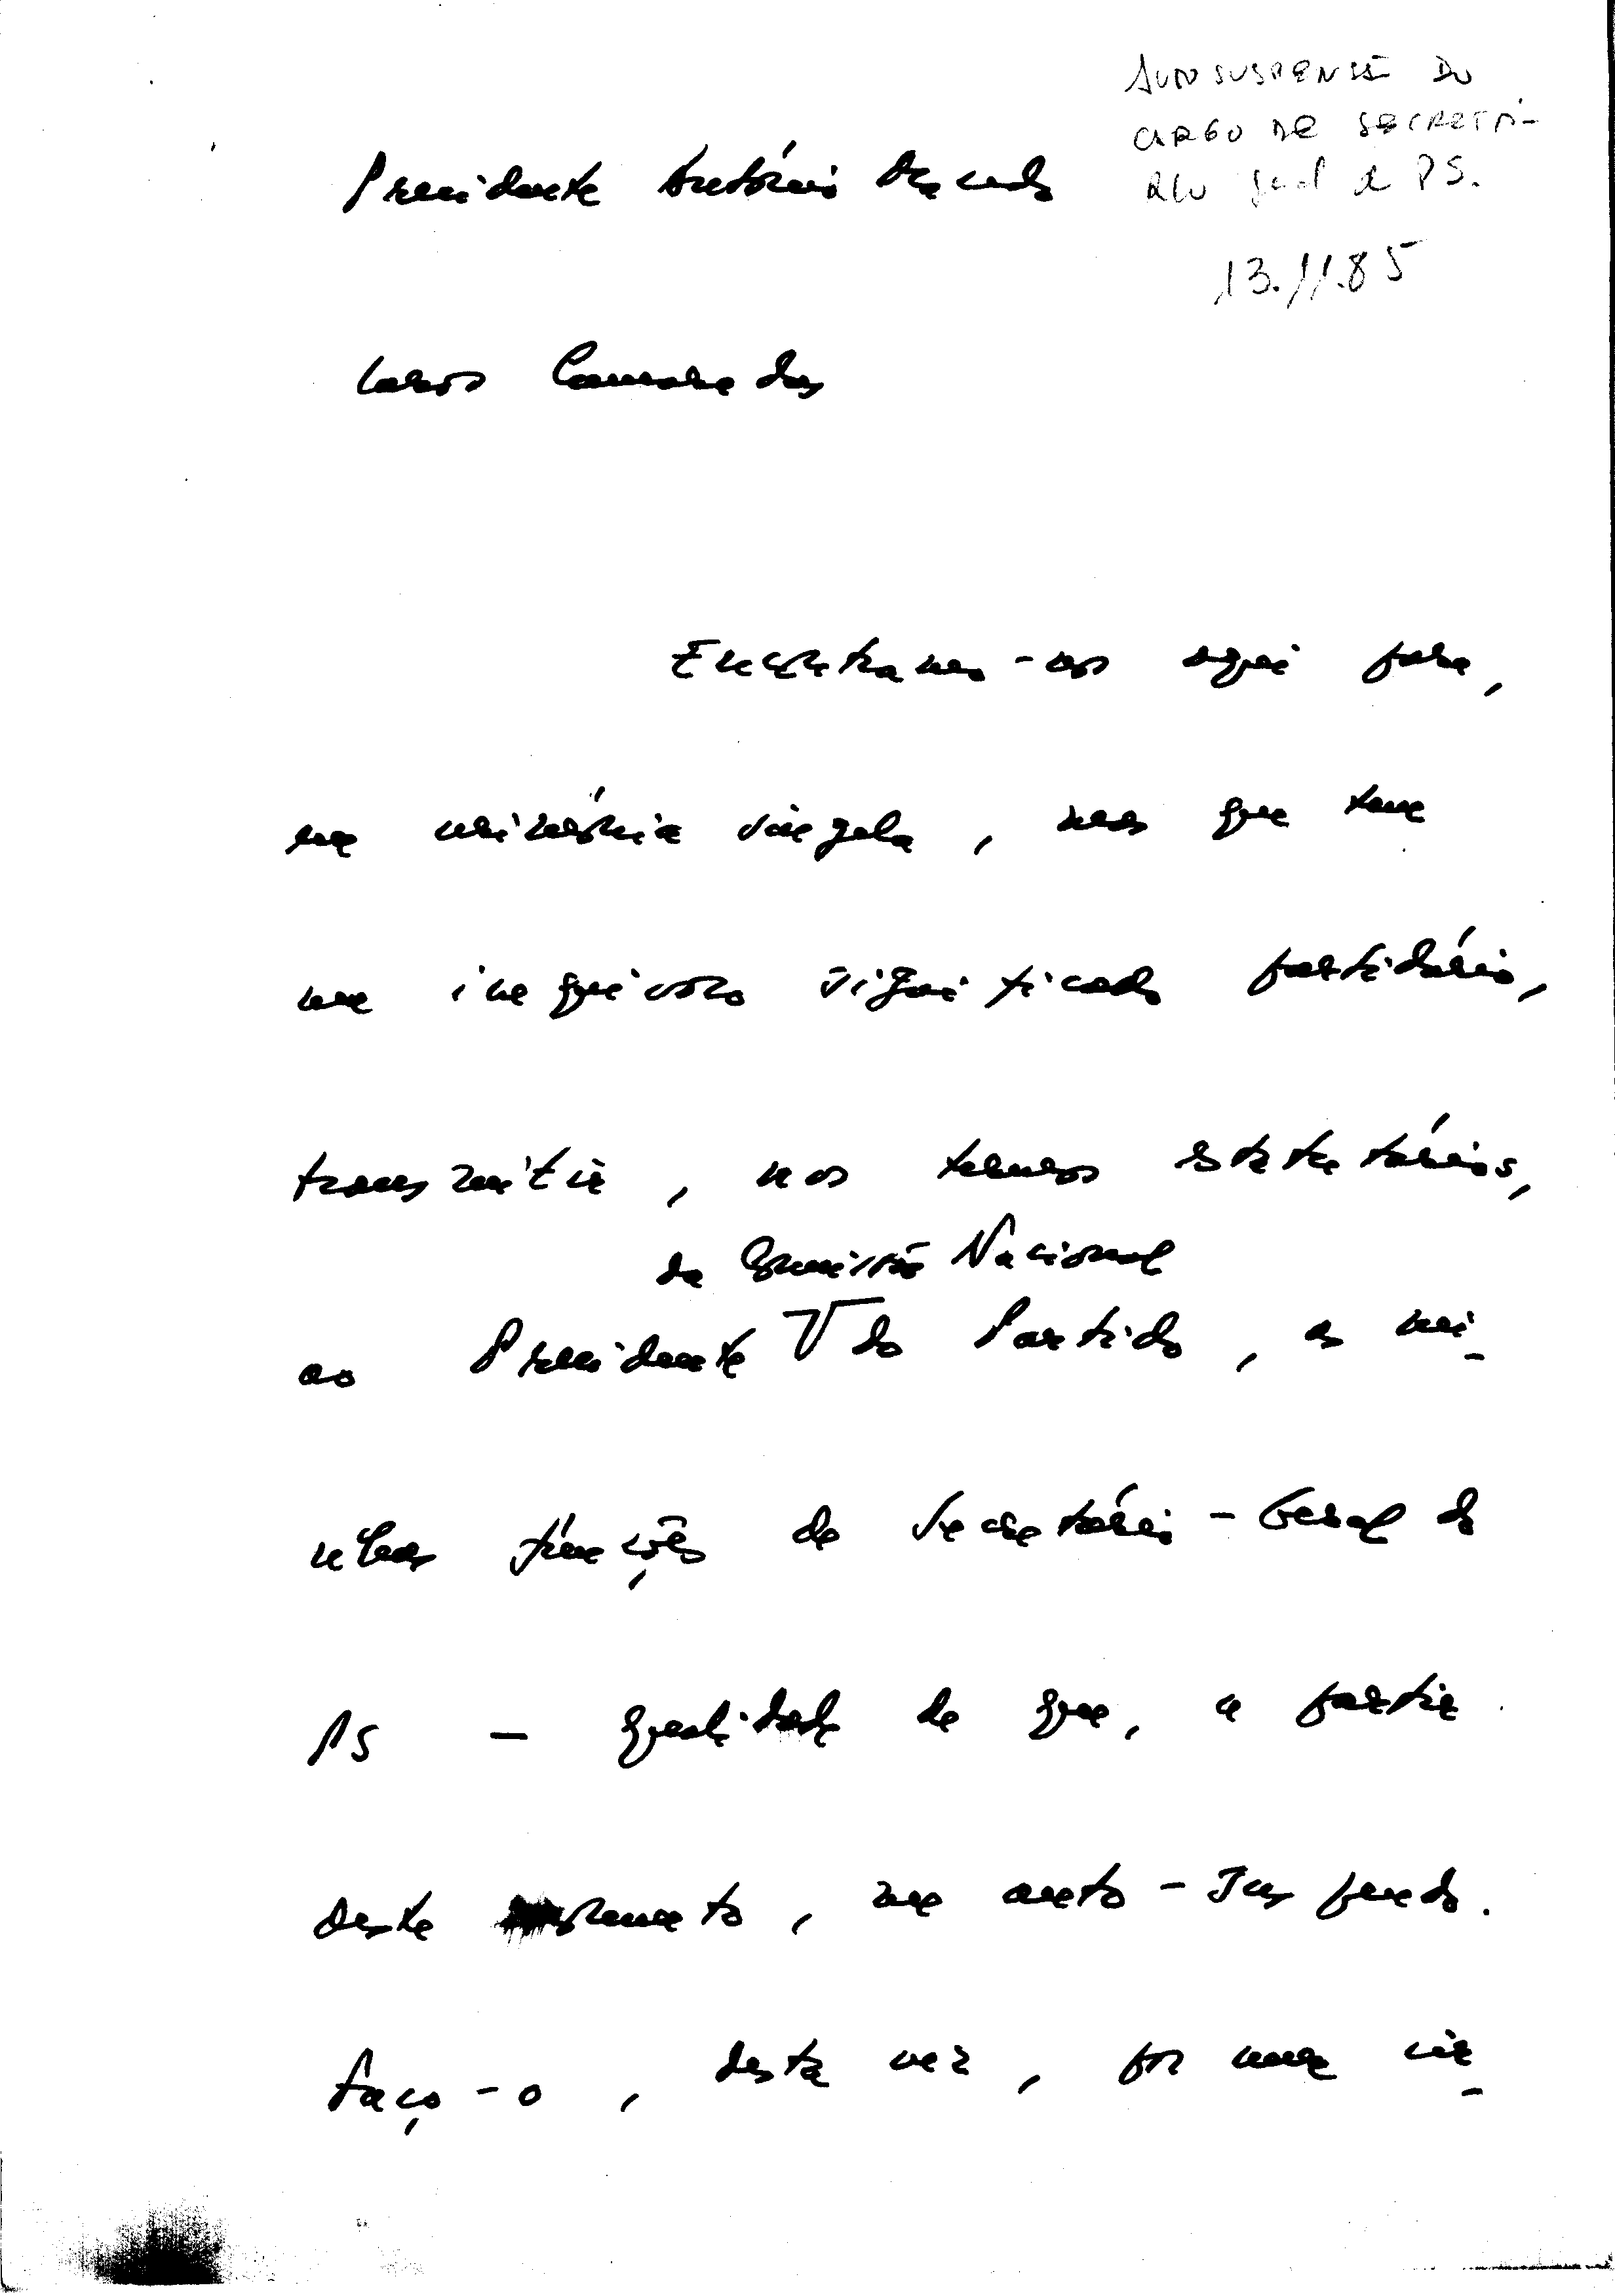 AUTOSUSPENSÃO DO
CARGO DE SECRETÁ-
RIO geral do PS.
13.11.85
Presidente António Macedo
Caros Camaradas
Encontramo-nos aqui para,
na cerimónia singela, mas que tem
um inequívoco significado partidário,
transmitir, nos termos estatutários,
da Comissão Nacional
ao Presidente do Partido, as mi-
nhas funções de Secretário-Geral do
PS - qualidade de que, a partir
deste momento, me auto-suspendo.
Faço-o, desta vez, por uma cir-